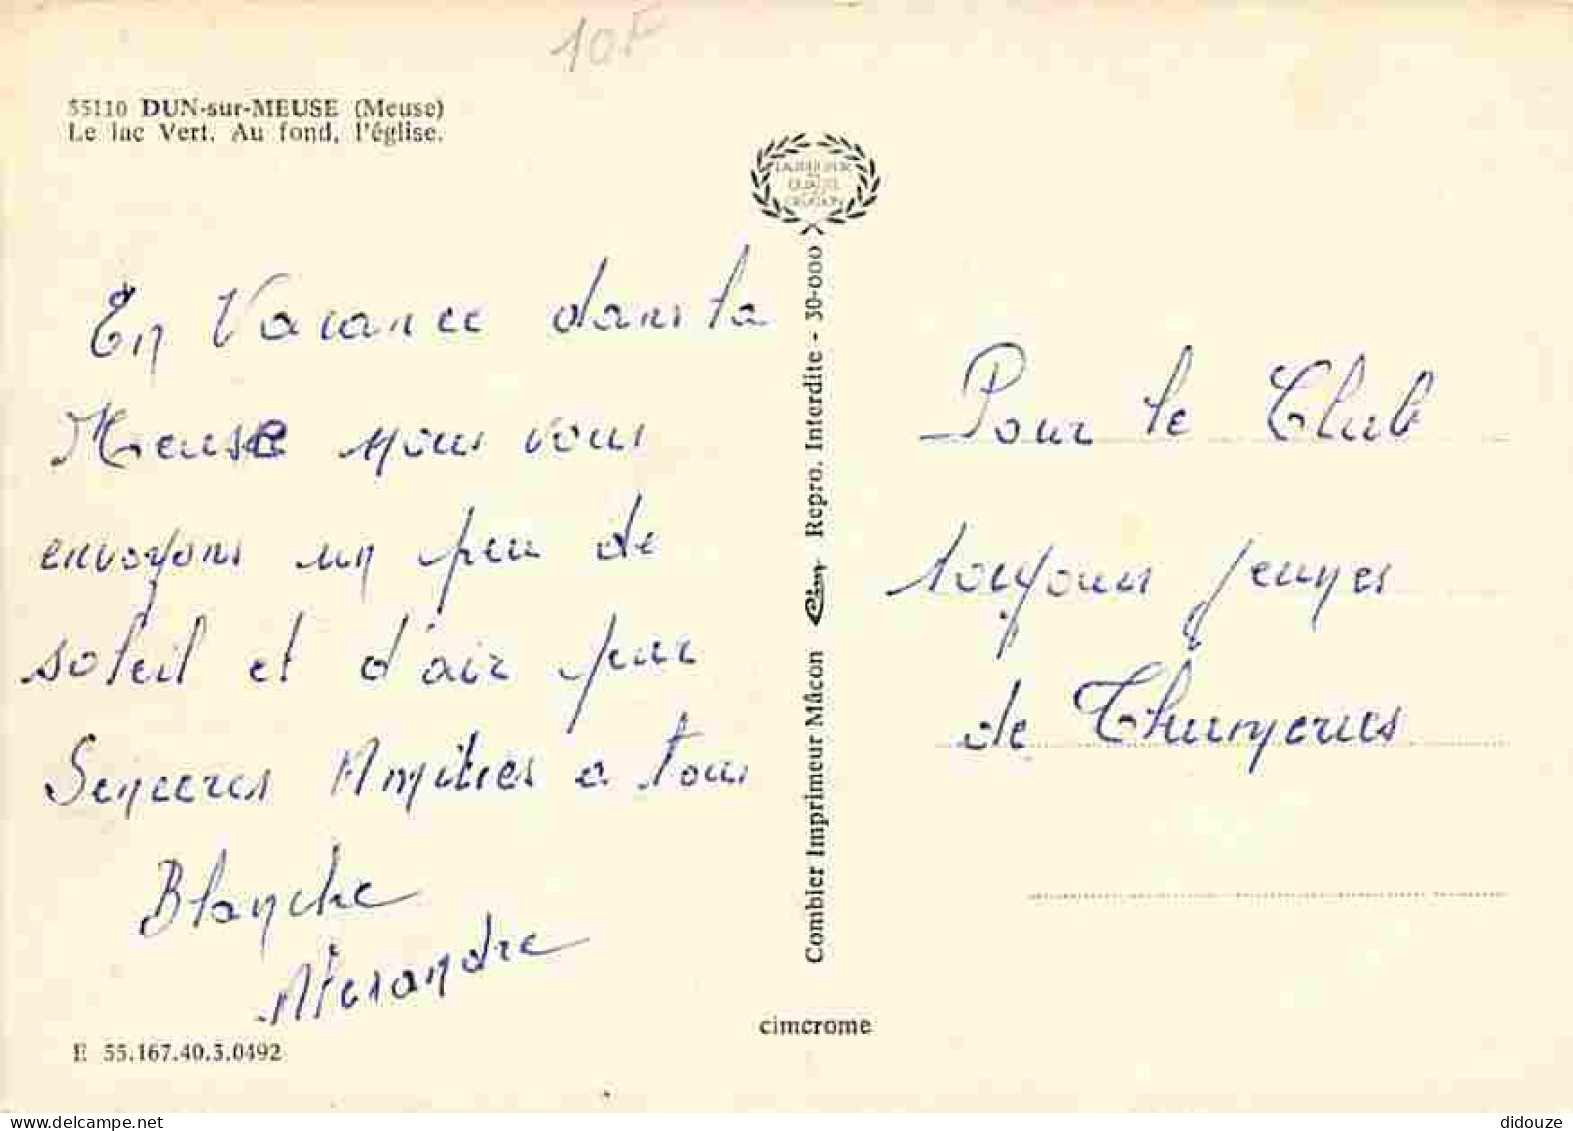 10F
55110 DUN-sur-MEUSE (Meuse)
Le lac Vert. Au fond, l'église.
En Vacance dans la
Meuse nous vous
envoyons un peu de
soleil et d'air pur
Senceres Amities a tous
Blanche
Alexandre
E 55.167.40.3.0492
Combier Imprimeur Mâcon Cim Repro. Interdite - 30-000
cimcrome
Pour le Club
toujours jeunes
de Thumeries
didouze
delcampe.net